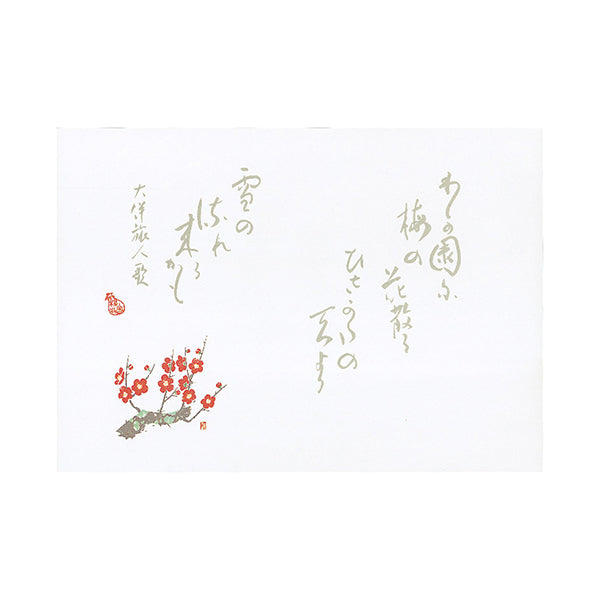 わが園に
梅の
花散る
ひさかたの
天より
雪の
流れ
来る
かも
大伴旅人歌